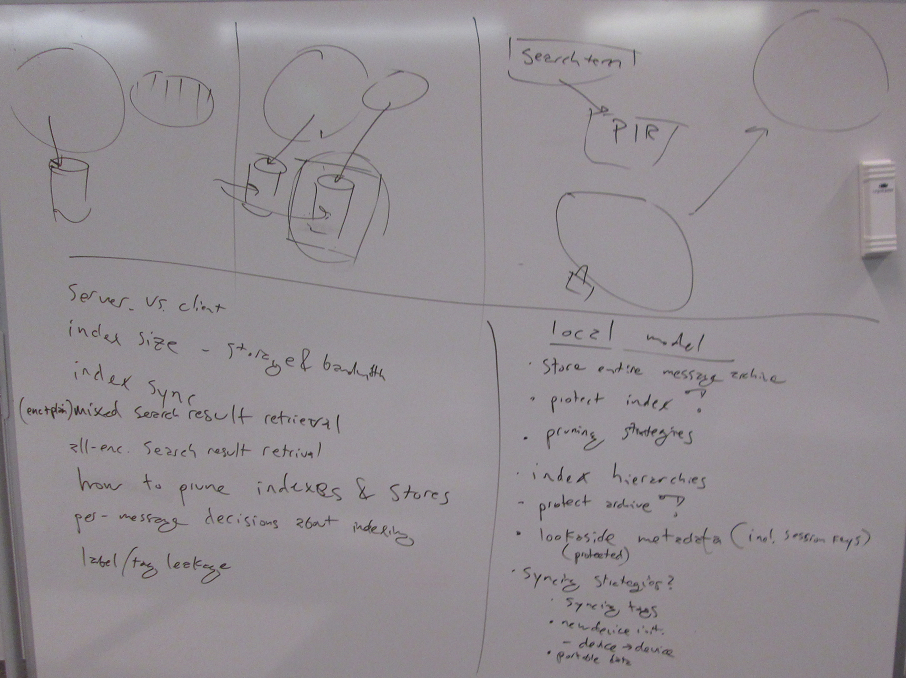 Search term
PIR
Server vs. client
index size - storage & bandwidth
index sync
(enc+plain) mixed search result retrieval
all-enc. search result retrival
how to prune indexes & stores
per-message decisions about indexing
label/tag leakage
local model
· store entire message archive
· protect index?
· pruning strategies
· index hierarchies
- protect archive?
· lookaside metadata (incl. session keys)
(protected)
· syncing strategies?
· syncing tags
· new device init.
- device → device
· portable